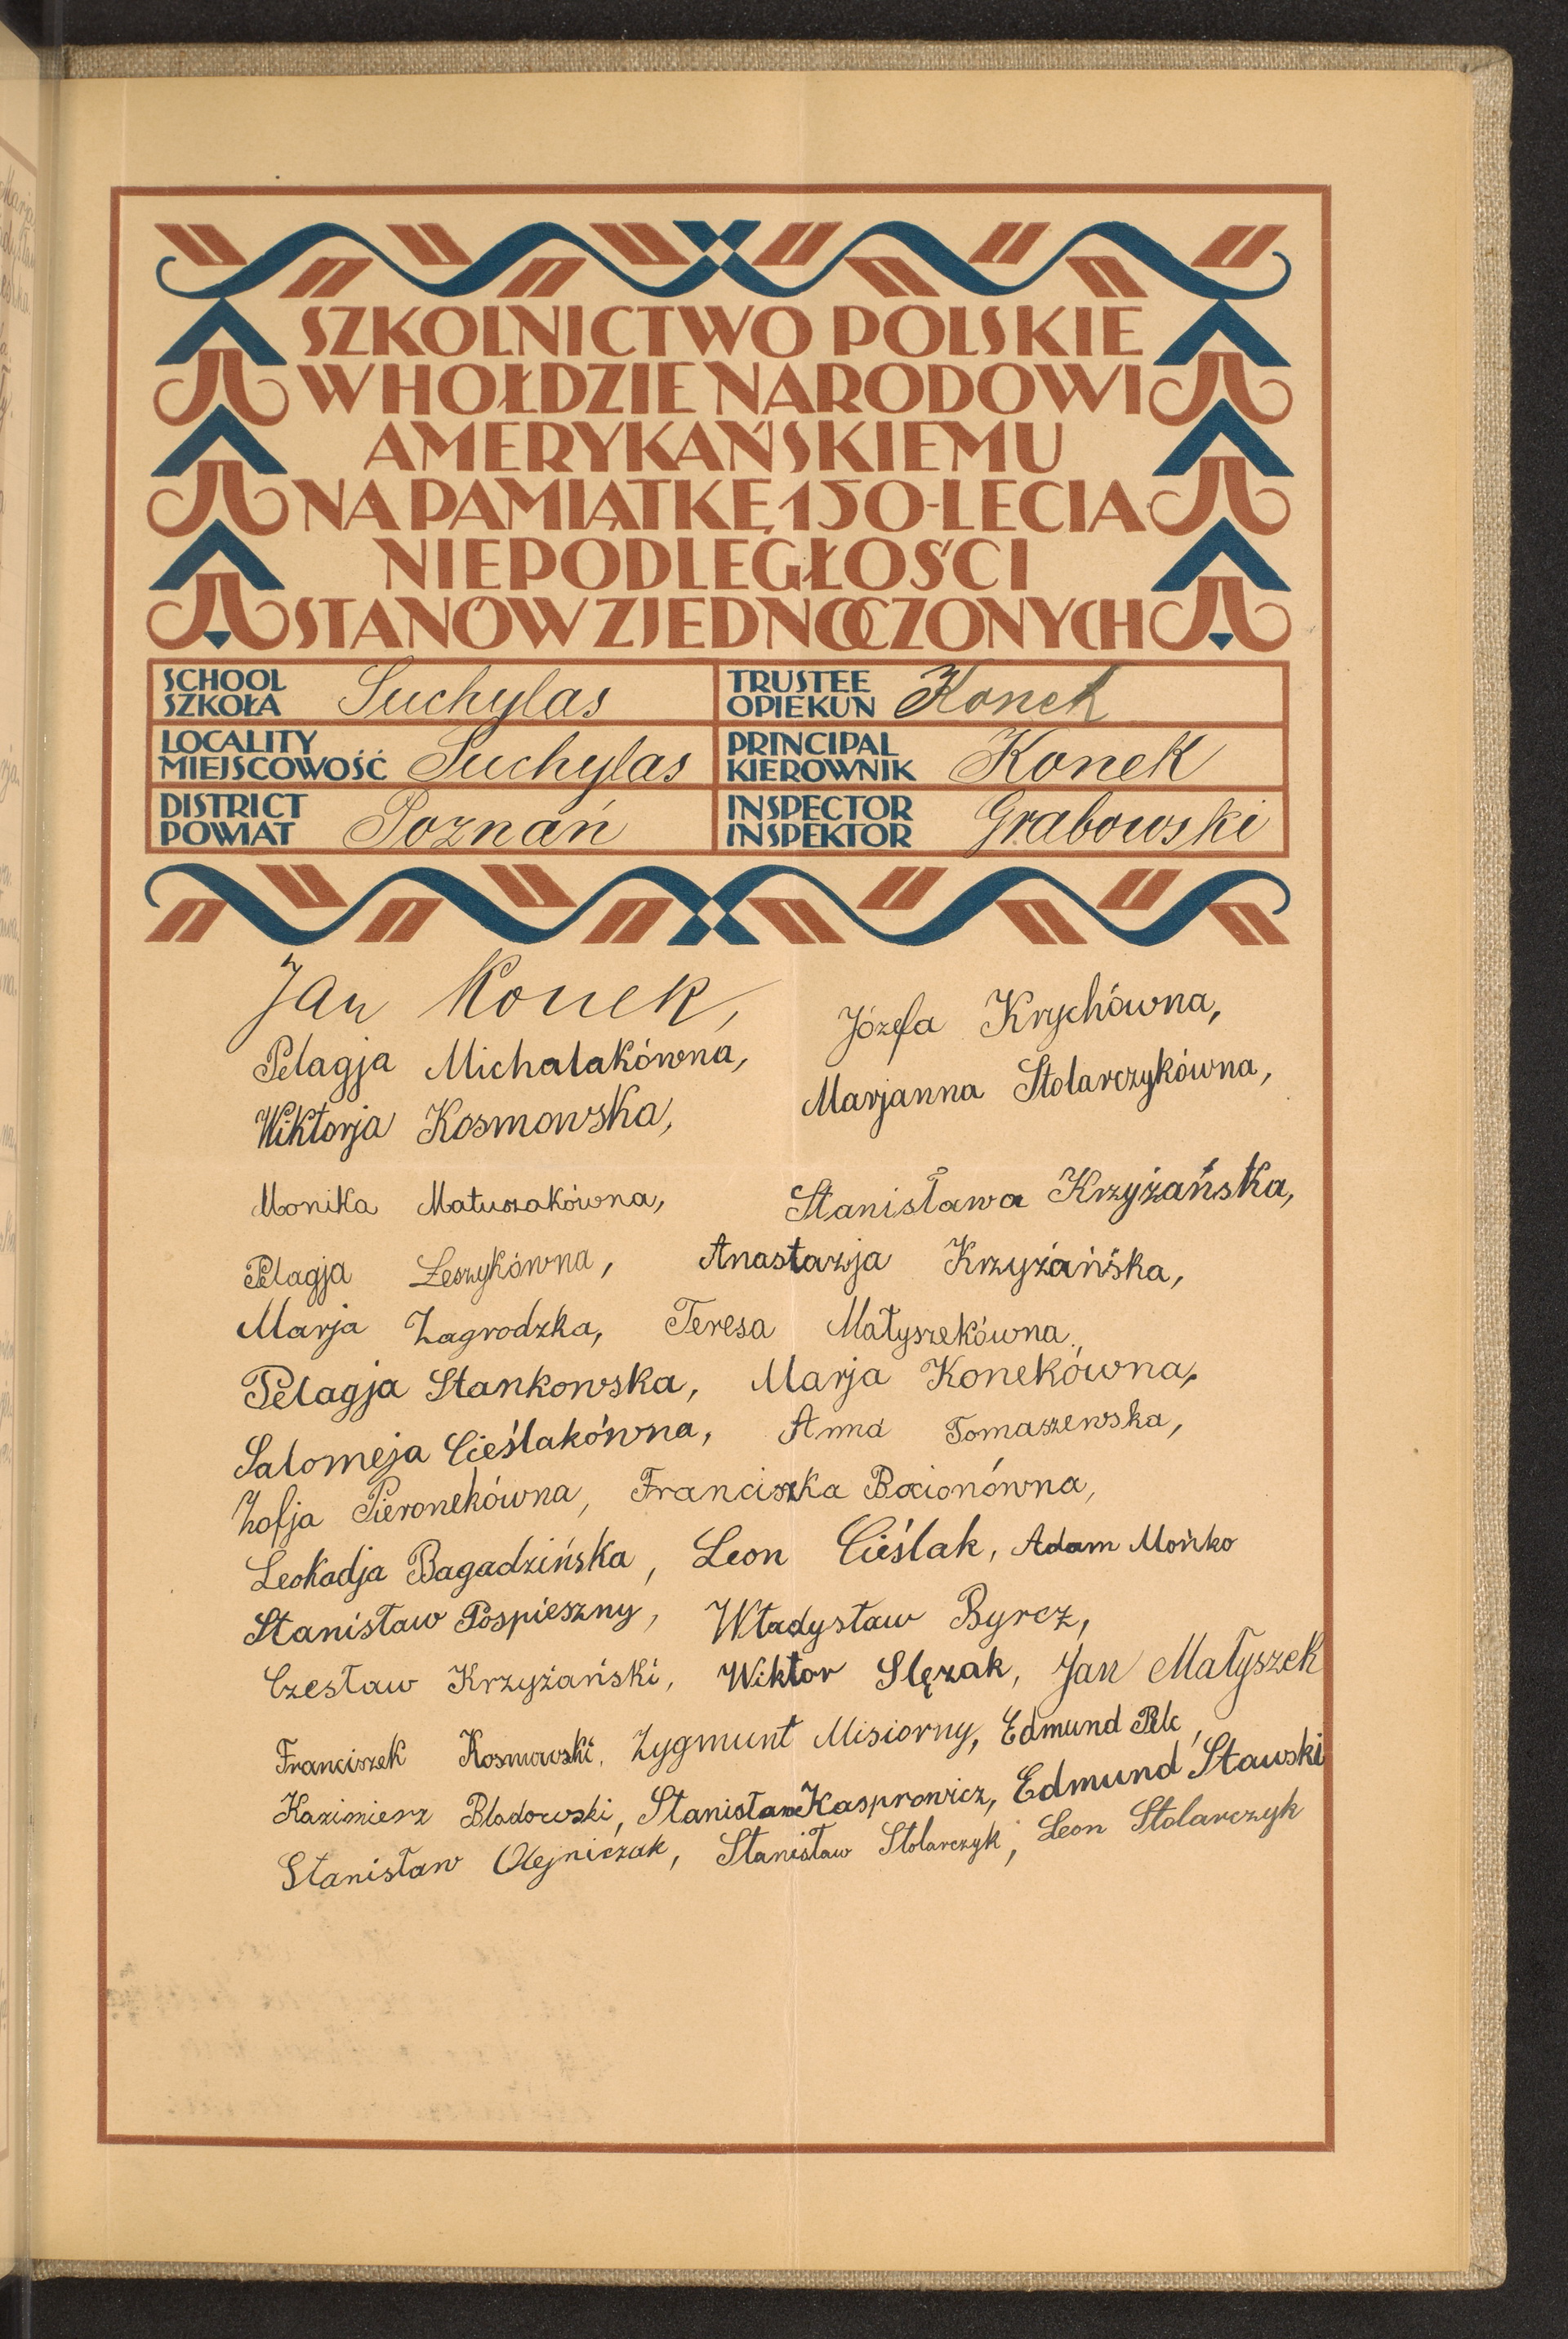 SZKOLNICTWO POLSKIE
W HOŁDZIE NARODOWI
AMERYKAŃSKIEMU
NA PAMIĄTKĘ 150-LECIA
NIEPODLEGŁOŚCI
STANÓW ZJEDNOCZONYCH
SCHOOL
SZKOŁA Suchylas
TRUSTEE
OPIEKUN Konek
LOCALITY
MIEJSCOWOŚĆ Suchylas
PRINCIPAL
KIEROWNIK Konek
DISTRICT
POWIAT Poznań
INSPECTOR
INSPEKTOR Grabowski
Jan Konek, Józefa Krychówna,
Pelagja Michalakówna, Marjanna Stolarczykówna,
Wiktorja Kosmowska,
Monika Matuszakówna, Stanisława Krzyżańska,
Pelagja Leszykówna, Anastazja Krzyżańska,
Marja Zagrodzka, Teresa Małyszekówna,
Pelagja Stankowska, Marja Konekówna,
Salomeja Cieślakówna, Anna Tomaszewska,
Zofja Pieronekówna, Franciszka Bocionówna,
Leokadja Bagadzińska, Leon Cieślak, Adam Mońko
Stanisław Pospieszny, Władysław Byrcz,
Czesław Krzyżański, Wiktor Slęzak, Jan Małyszek
Franciszek Kosmowski, Zygmunt Misiorny, Edmund Pelc,
Kazimierz Bladowski, Stanisław Kasprowicz, Edmund Stawski
Stanisław Olejniczak, Stanisław Stolarczyk, Leon Stolarczyk